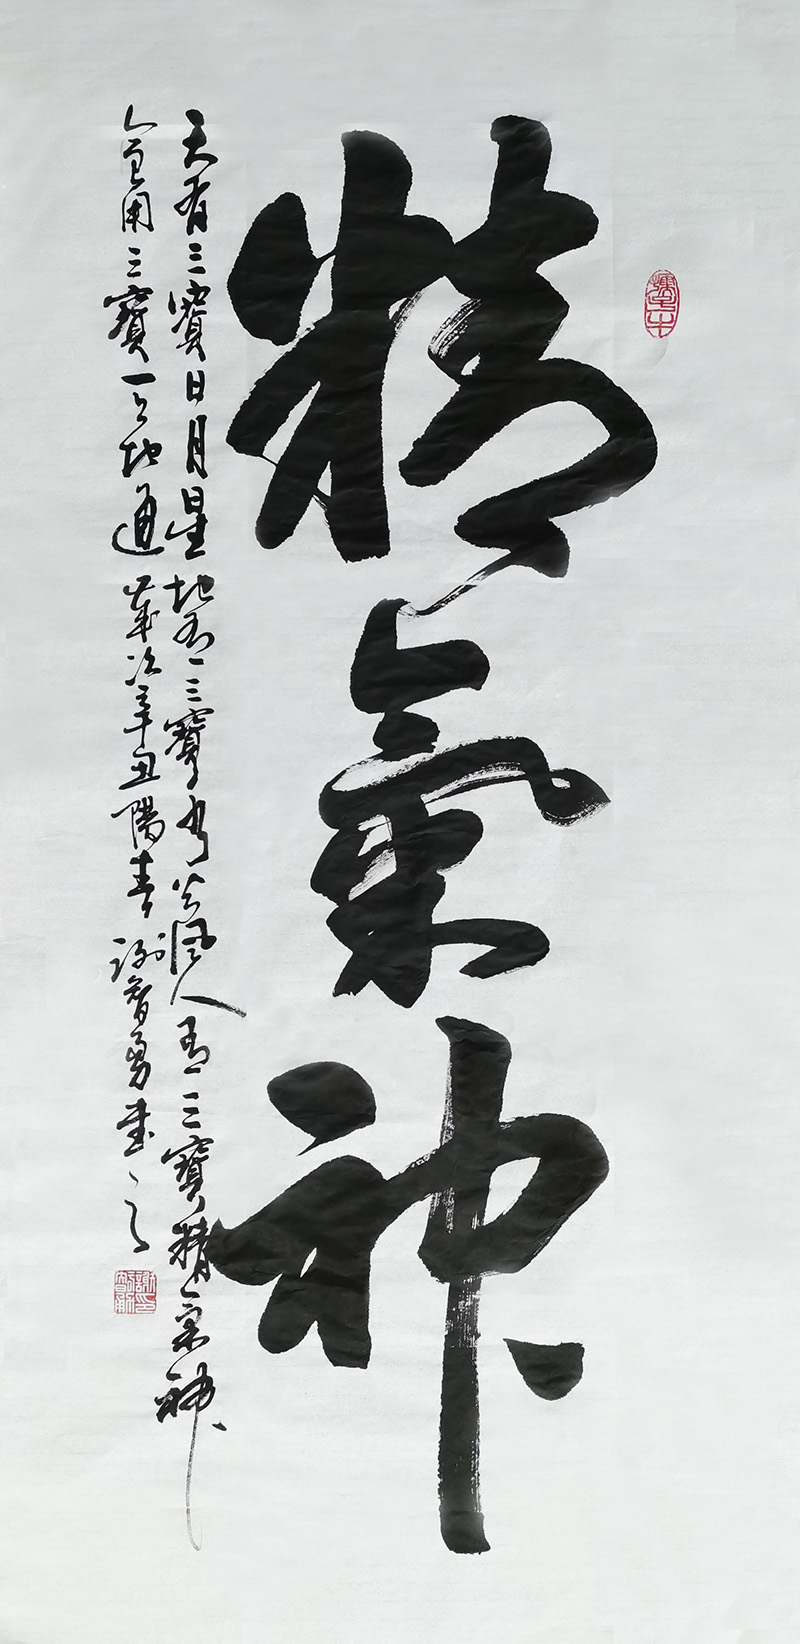 精氣神
天有三寶日月星地有三寶水火風人有三寶精氣神
會用三寶天地通歲次辛丑陽春謝智勇書之